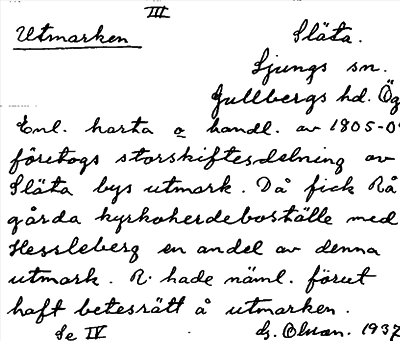 III
Utmarken Släta.
Ljungs sn.
Gullbergs hd. Ög
Enl. karta o handl. av 1805-0
företogs storskiftesdelning av
Släta bys utmark. Då fick Rå
gårda kyrkoherdeboställe med
Hessleberg en andel av denna
utmark. R. hade näml. förut
haft betesrätt å utmarken.
Se IV G. 1937